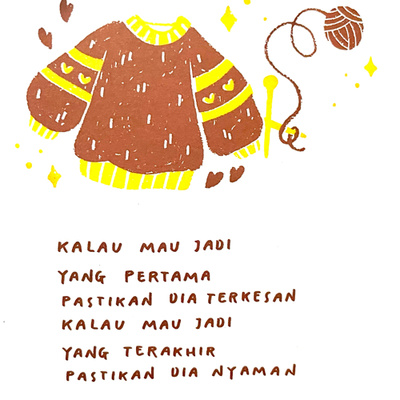 KALAU MAU JADI
YANG PERTAMA
PASTIKAN DIA TERKESAN
KALAU MAU JADI
YANG TERAKHIR
PASTIKAN DIA NYAMAN